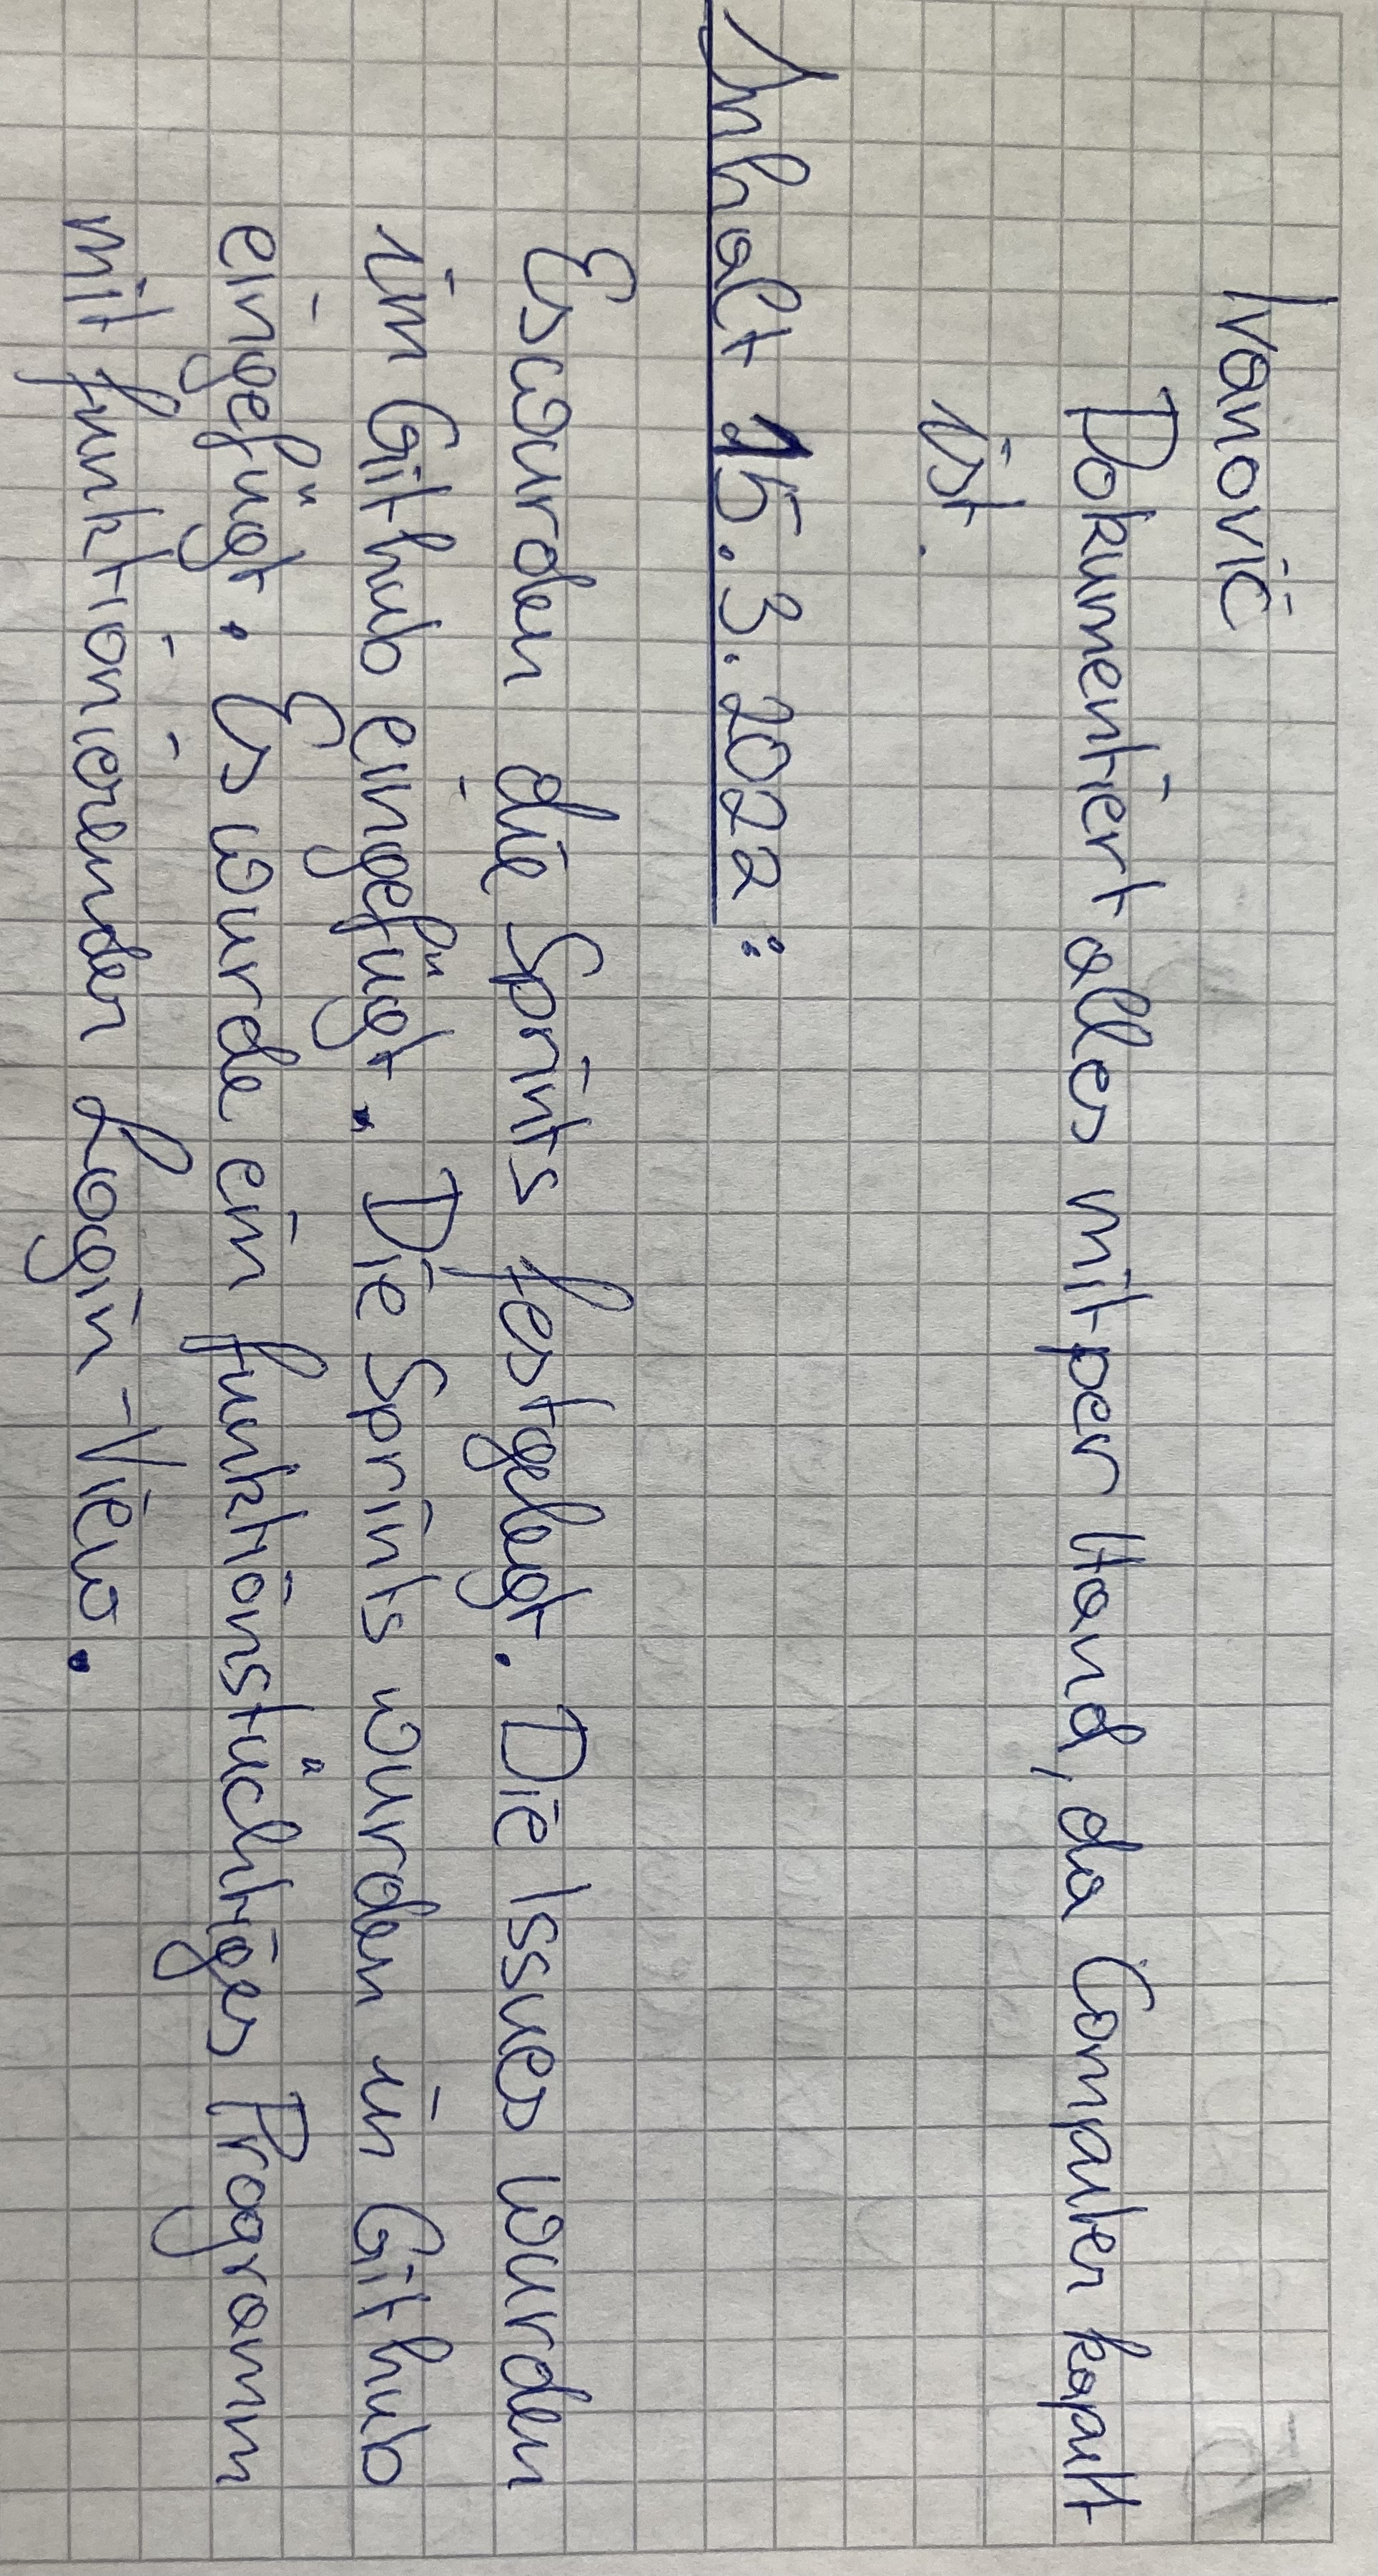 Ivanović
Dokumentiert alles mit per Hand, da Computer kaputt
ist.
Inhalt 15.3.2022:
Es wurden die Sprints festgelegt. Die Issues wurden
im Github eingefügt. Die Sprints wurden in Github
eingefügt. Es wurde ein funktionstüchtiges Programm
mit funktionierender Login-View.